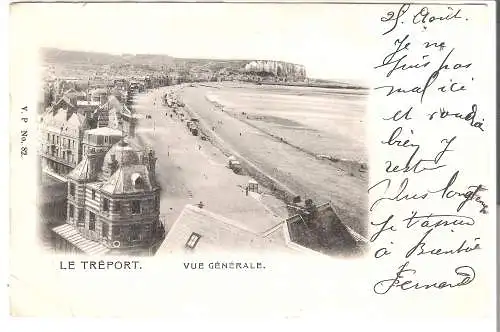 25 Août.
Je ne
suis pas
mal ici
et voudrais
bien y
reste
plus longtemps
à Bientôt
Fernand
V. P. No. 82.
LE TRÉPORT. VUE GÉNÉRALE.